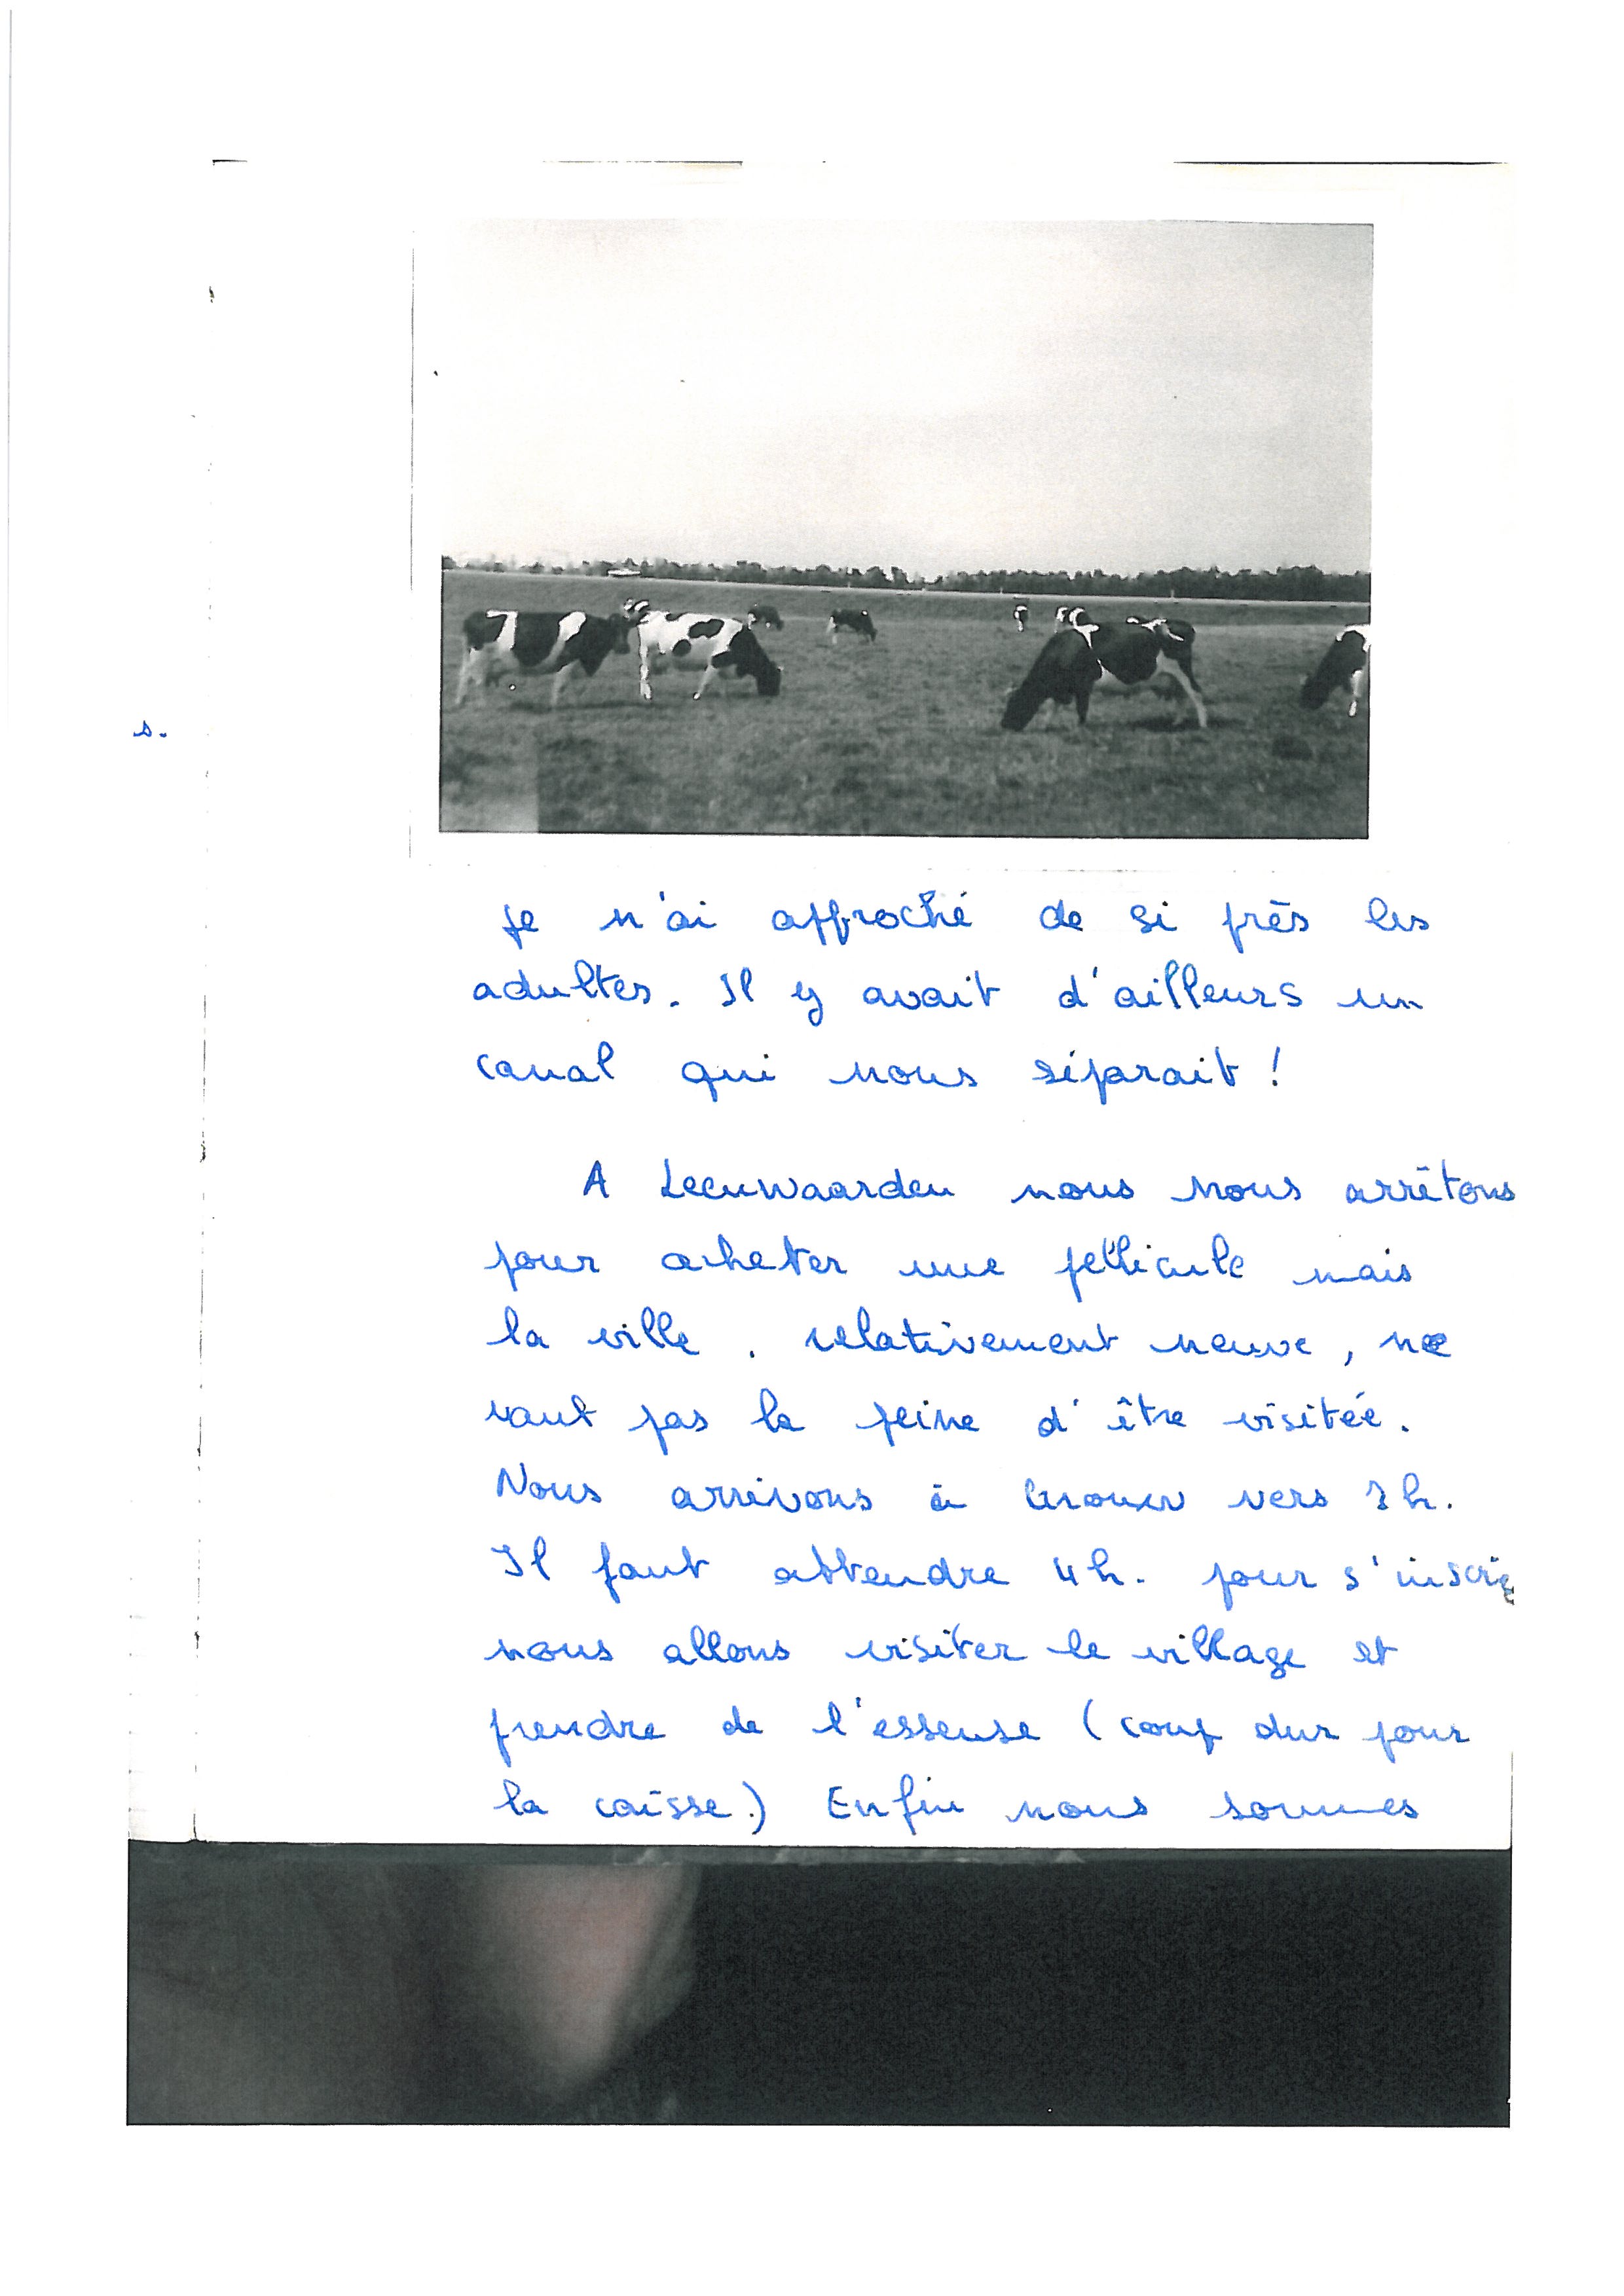 s.
Je n'ai approché de si près les
adultes. Il y avait d'ailleurs un
canal qui nous séparait !
A Leeuwaarden nous nous arrêtons
pour acheter une péllicule mais
la ville , relativement neuve, ne
vaut pas la peine d'être visitée.
Nous arrivons à vers h.
Il faut attendre 4h. pour s'inscri
nous allons visiter le village et
prendre de l'essense (coup dur pour
la caisse.) Enfin nous sommes